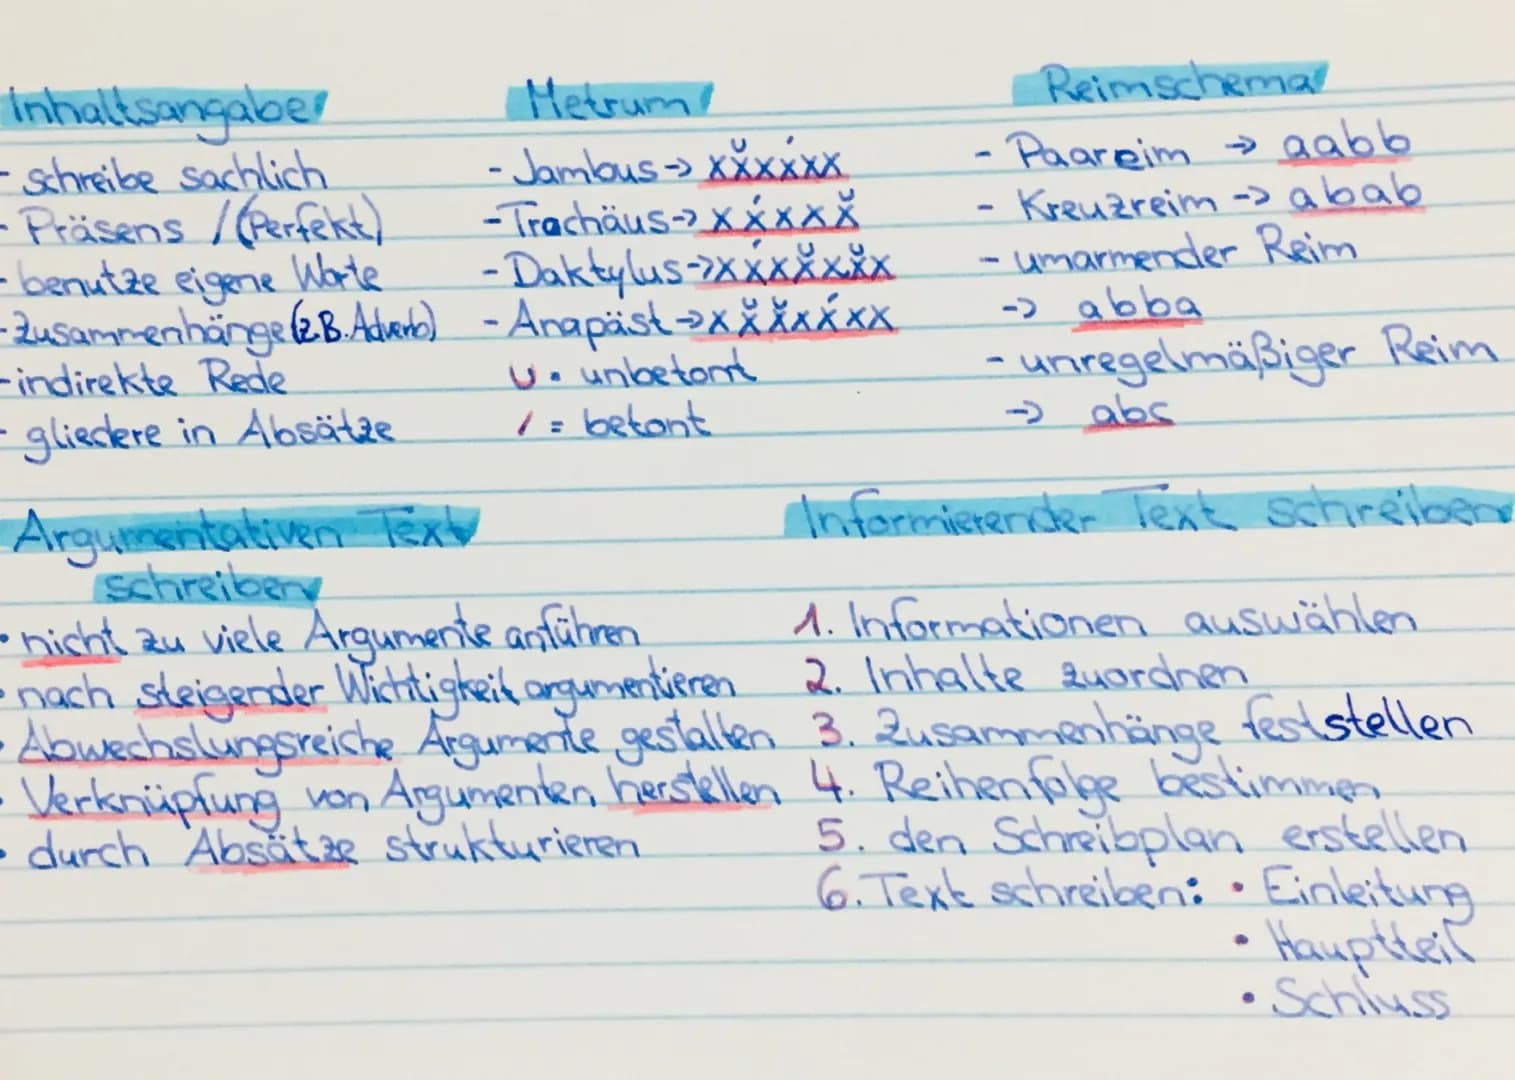 Inhaltsangabe
- schreibe sachlich
- Präsens / (Perfekt)
- benutze eigene Worte
- Zusammenhänge (z.B. Adverb)
- indirekte Rede
- gliedere in Absätze
Metrum
- Jambus -> xx̆xx́xx
- Trochäus -> xx́xxx̆
- Daktylus -> xx́xx̆xx̆x
- Anapäst -> xx̆x̆xx́xx
∪ = unbetont
/ = betont
Reimschema
- Paareim -> aabb
- Kreuzreim -> abab
- umarmender Reim
-> abba
- unregelmäßiger Reim
-> abc
Argumentativen Text
schreiben
• nicht zu viele Argumente anführen
• nach steigender Wichtigkeit argumentieren
• Abwechslungsreiche Argumente gestalten
• Verknüpfung von Argumenten herstellen
• durch Absätze strukturieren
Informierender Text schreiben
1. Informationen auswählen
2. Inhalte zuordnen
3. Zusammenhänge feststellen
4. Reihenfolge bestimmen
5. den Schreibplan erstellen
6. Text schreiben: • Einleitung
• Hauptteil
• Schluss